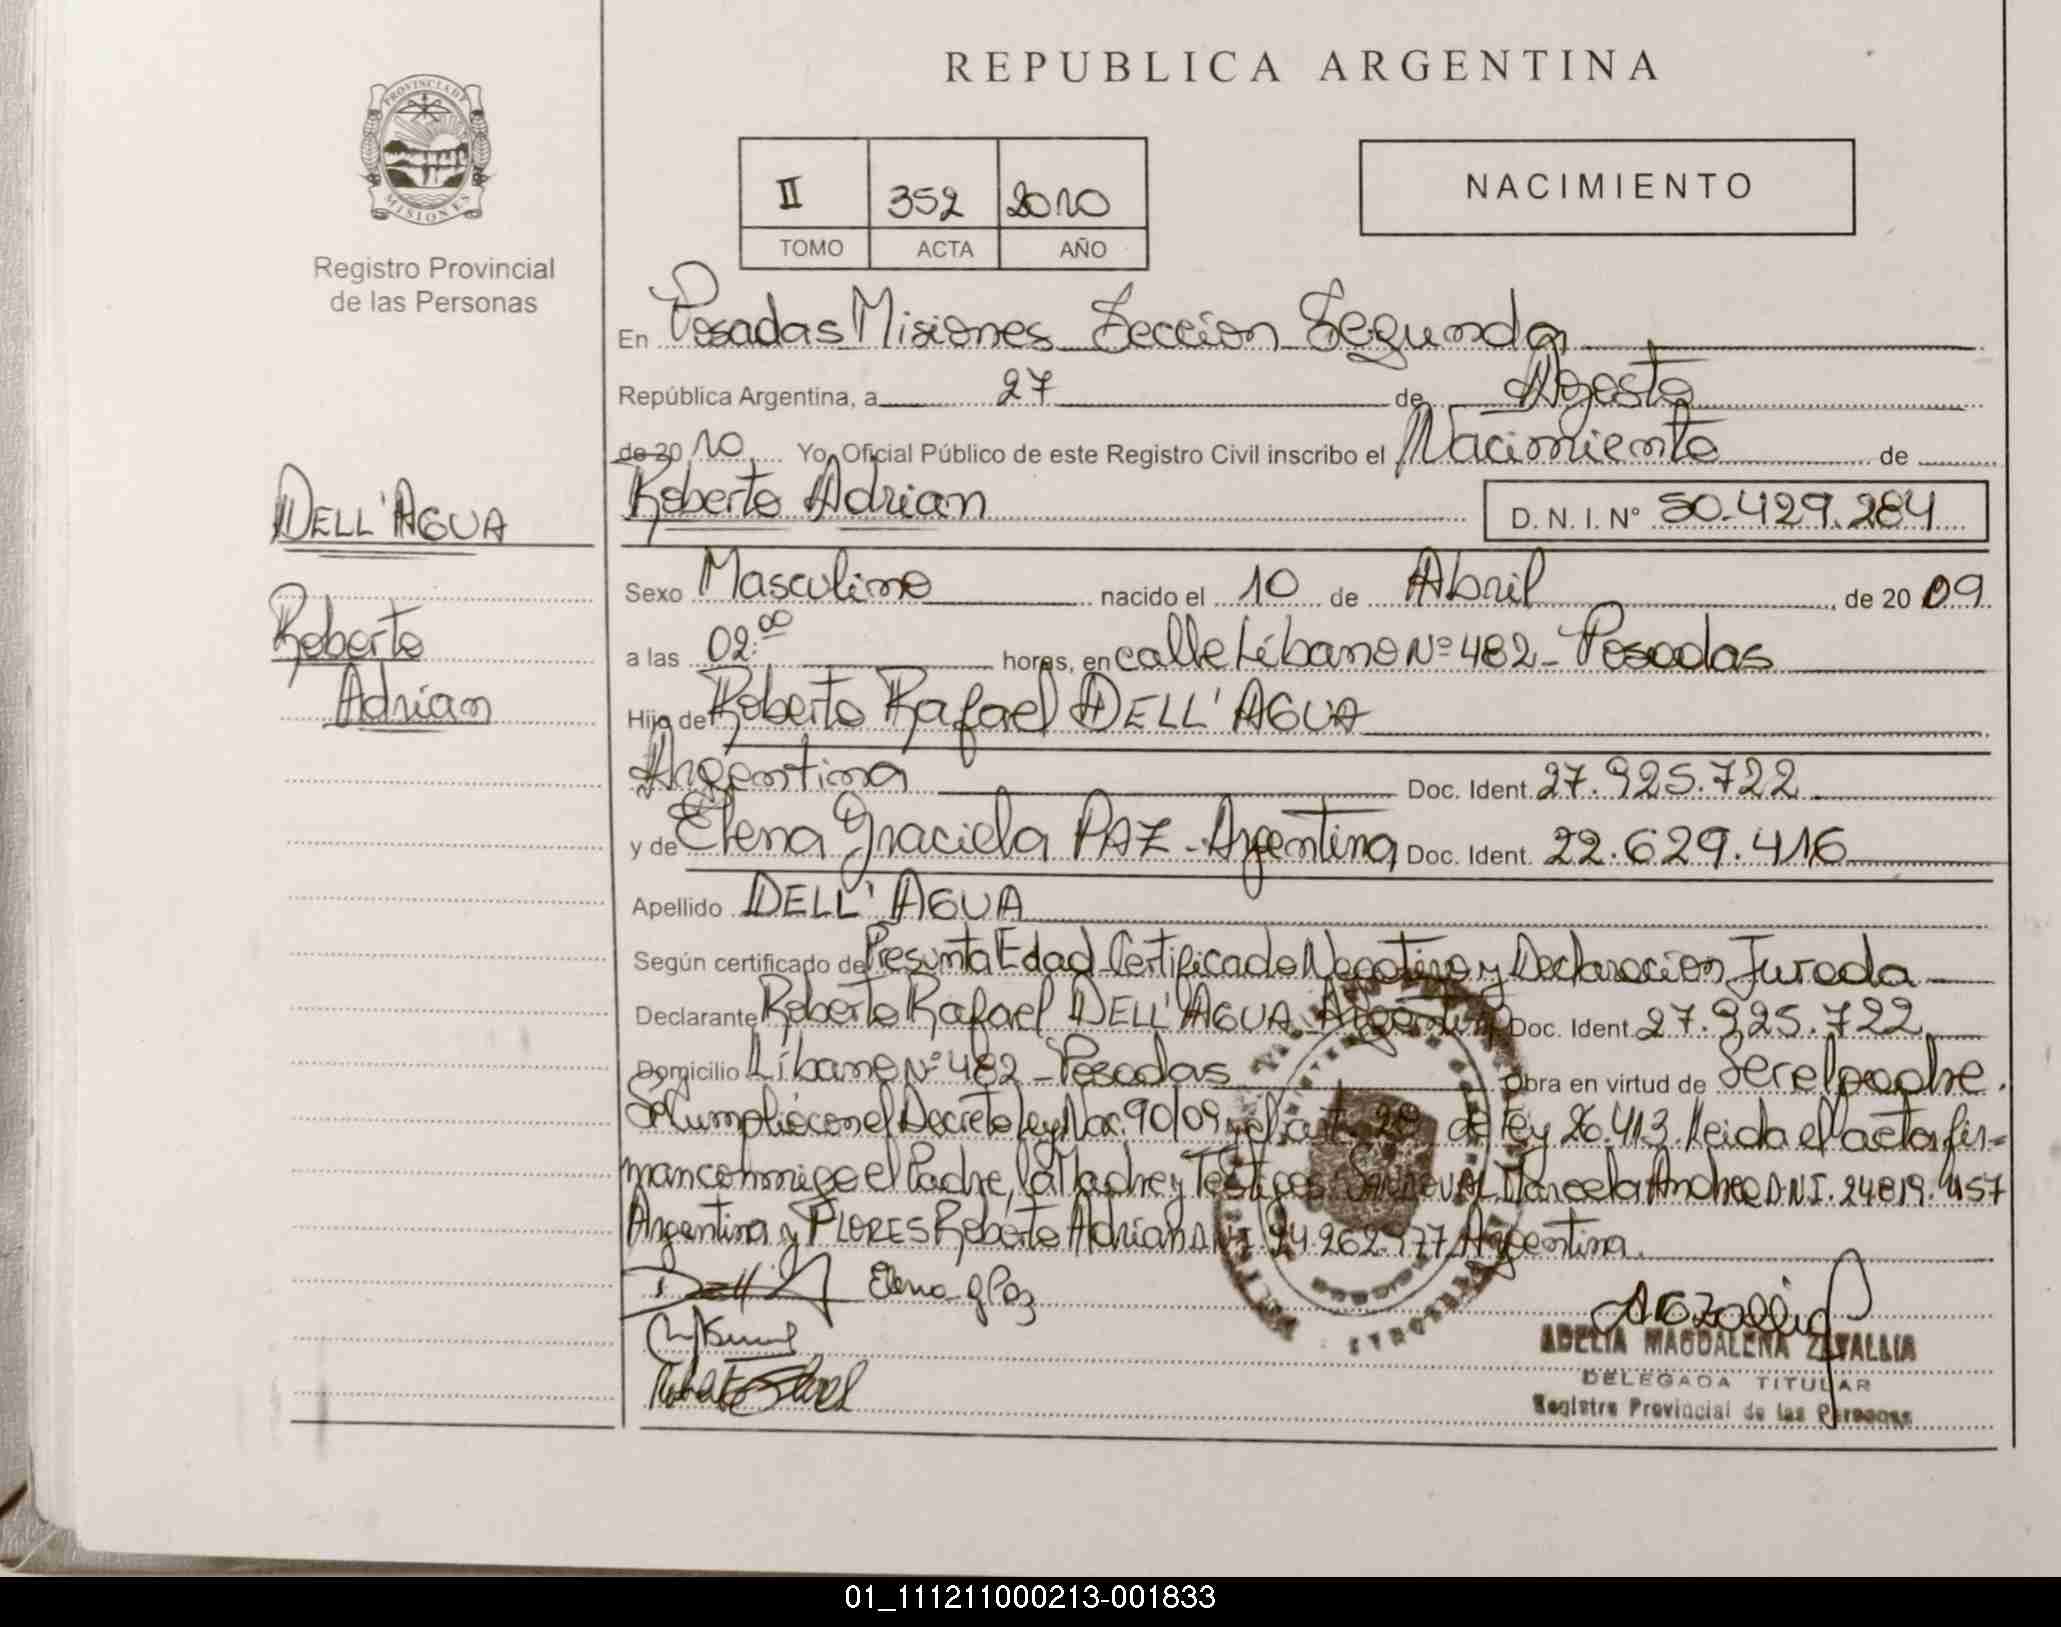 REPUBLICA ARGENTINA
PROVINCIA DE
MISIONES
Registro Provincial
de las Personas
II 352 2010
TOMO ACTA AÑO
NACIMIENTO
En Posadas Misiones Seccion Segunda
República Argentina, a 27 de Agosto
de 2010 Yo, Oficial Público de este Registro Civil inscribo el Nacimiento de
DELL'AGUA
Roberto Adrian D. N. I. N° 50.429.284
Sexo Masculino nacido el 10 de Abril de 2009
Roberto
a las 02:00 horas, en calle Líbano Nº 482 - Posadas
Adrian
Hijo de Roberto Rafael DELL'AGUA
Argentina Doc. Ident. 27.925.722
y de Elena Graciela PAZ - Argentina Doc. Ident. 22.629.416
Apellido DELL'AGUA
Según certificado de Presunta Edad Certificado Negativo y Declaracion Jurada
Declarante Roberto Rafael DELL'AGUA Argentina Doc. Ident. 27.925.722
Domicilio Líbano Nº 482 - Posadas Obra en virtud de Ser el padre.
Se cumplió con el Decreto Ley Nac. 90/09 y el art. 29 de Ley 26.413. Leida el acta fir-
man conmigo el Padre, la Madre y Testigos SANDOVAL Marcela Andrea D.N.I. 24.819.457
Argentina y FLORES Roberto Adrian DNI 24.262.977 Argentina.
Elena G Paz
ADELIA MAGDALENA ZAVALLIA
DELEGADA TITULAR
Registro Provincial de las Personas
01_111211000213-001833